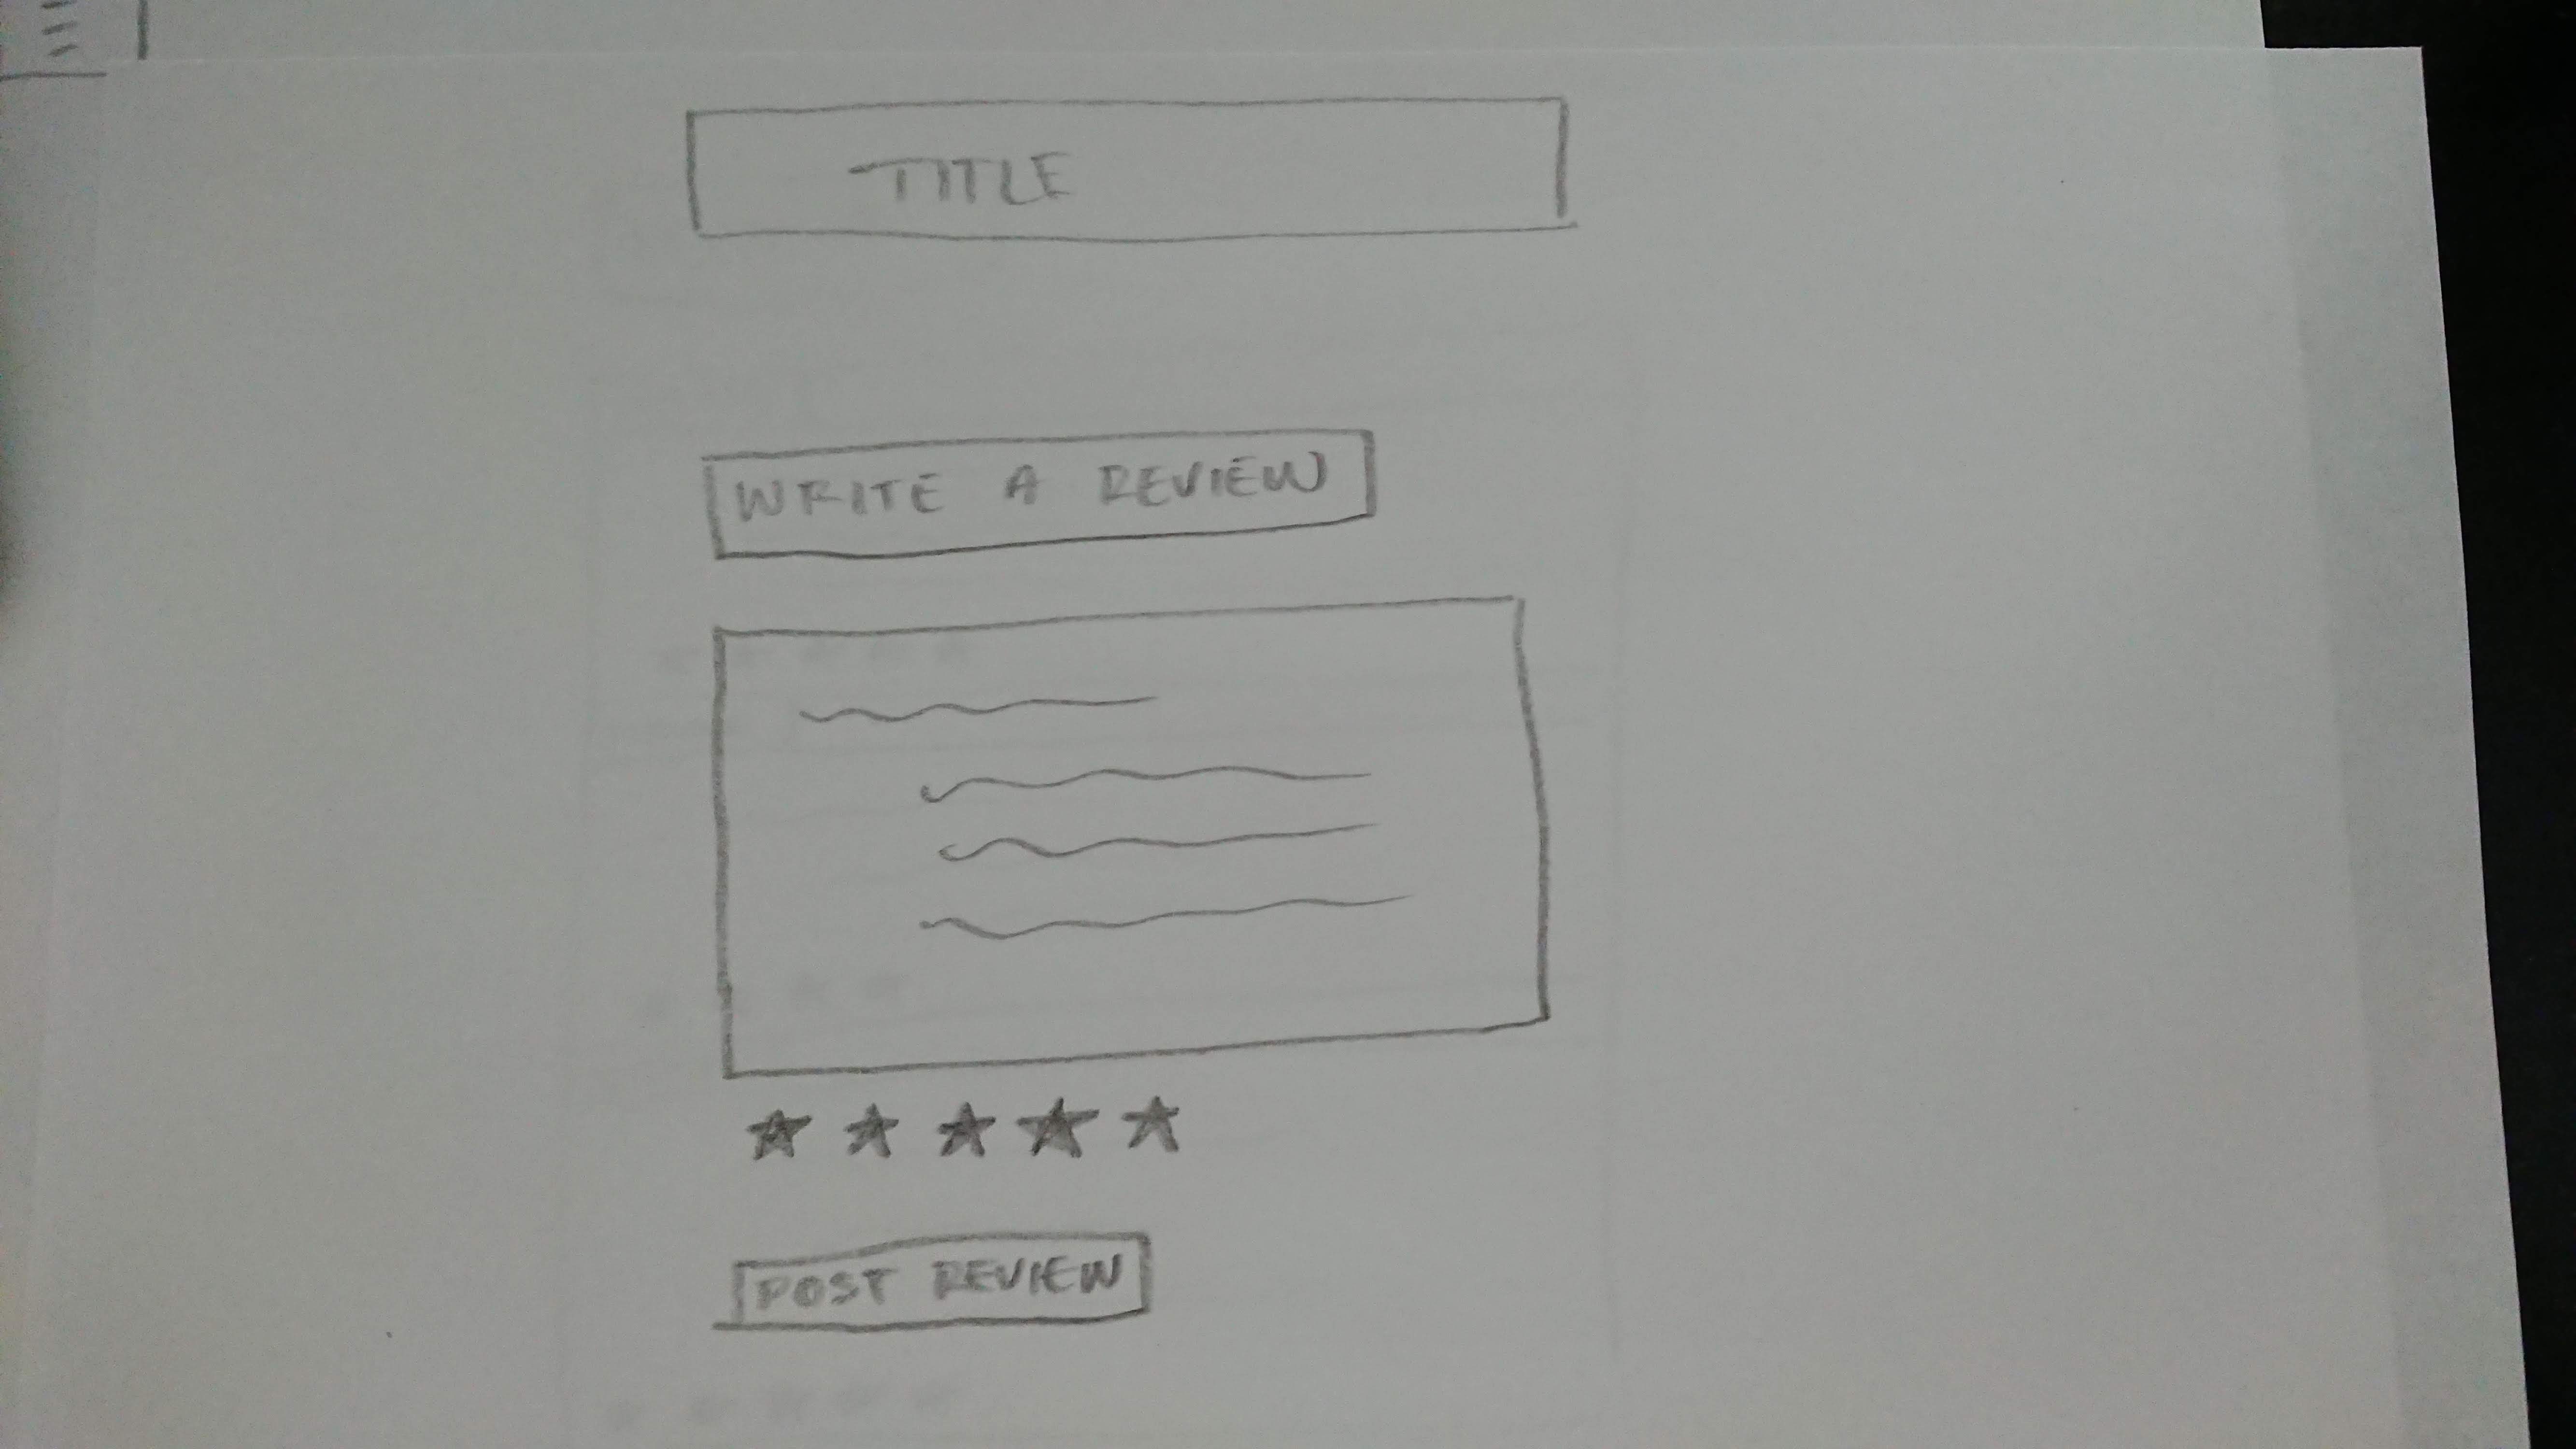 TITLE
WRITE A REVIEW
POST REVIEW